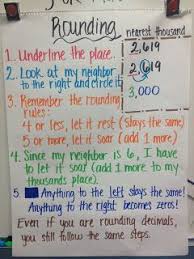 Rounding
nearest thousand
1. Underline the place.
2,619
2. Look at my neighbor
to the right and circle it.
2,619
3. Remember the rounding
rules:
3,000
4 or less, let it rest (stays the same)
5 or more, let it soar (add 1 more)
4. Since my neighbor is 6, I have
to let it soar (add 1 more to my
thousands place).
5. Anything to the left stays the same!
Anything to the right becomes zeros!
Even if you are rounding decimals,
you still follow the same steps.